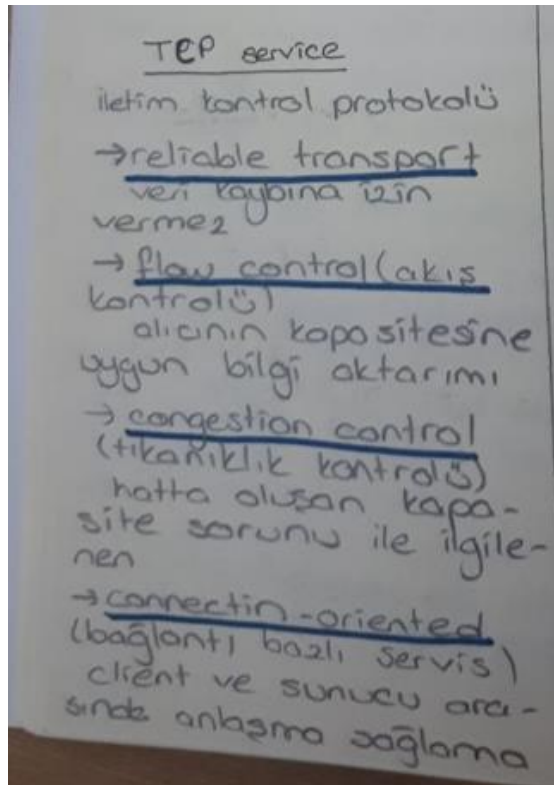 TCP service
iletim kontrol protokolü
→reliable transport
veri kaybına izin
vermez
→ flow control (akış
kontrolü)
alıcının kapasitesine
uygun bilgi aktarımı
→ congestion control
(tıkanıklık kontrolü)
hatta oluşan kapa-
site sorunu ile ilgile-
nen
→ connectin-oriented
(bağlantı bazlı servis)
client ve sunucu ara-
sında anlaşma sağlama